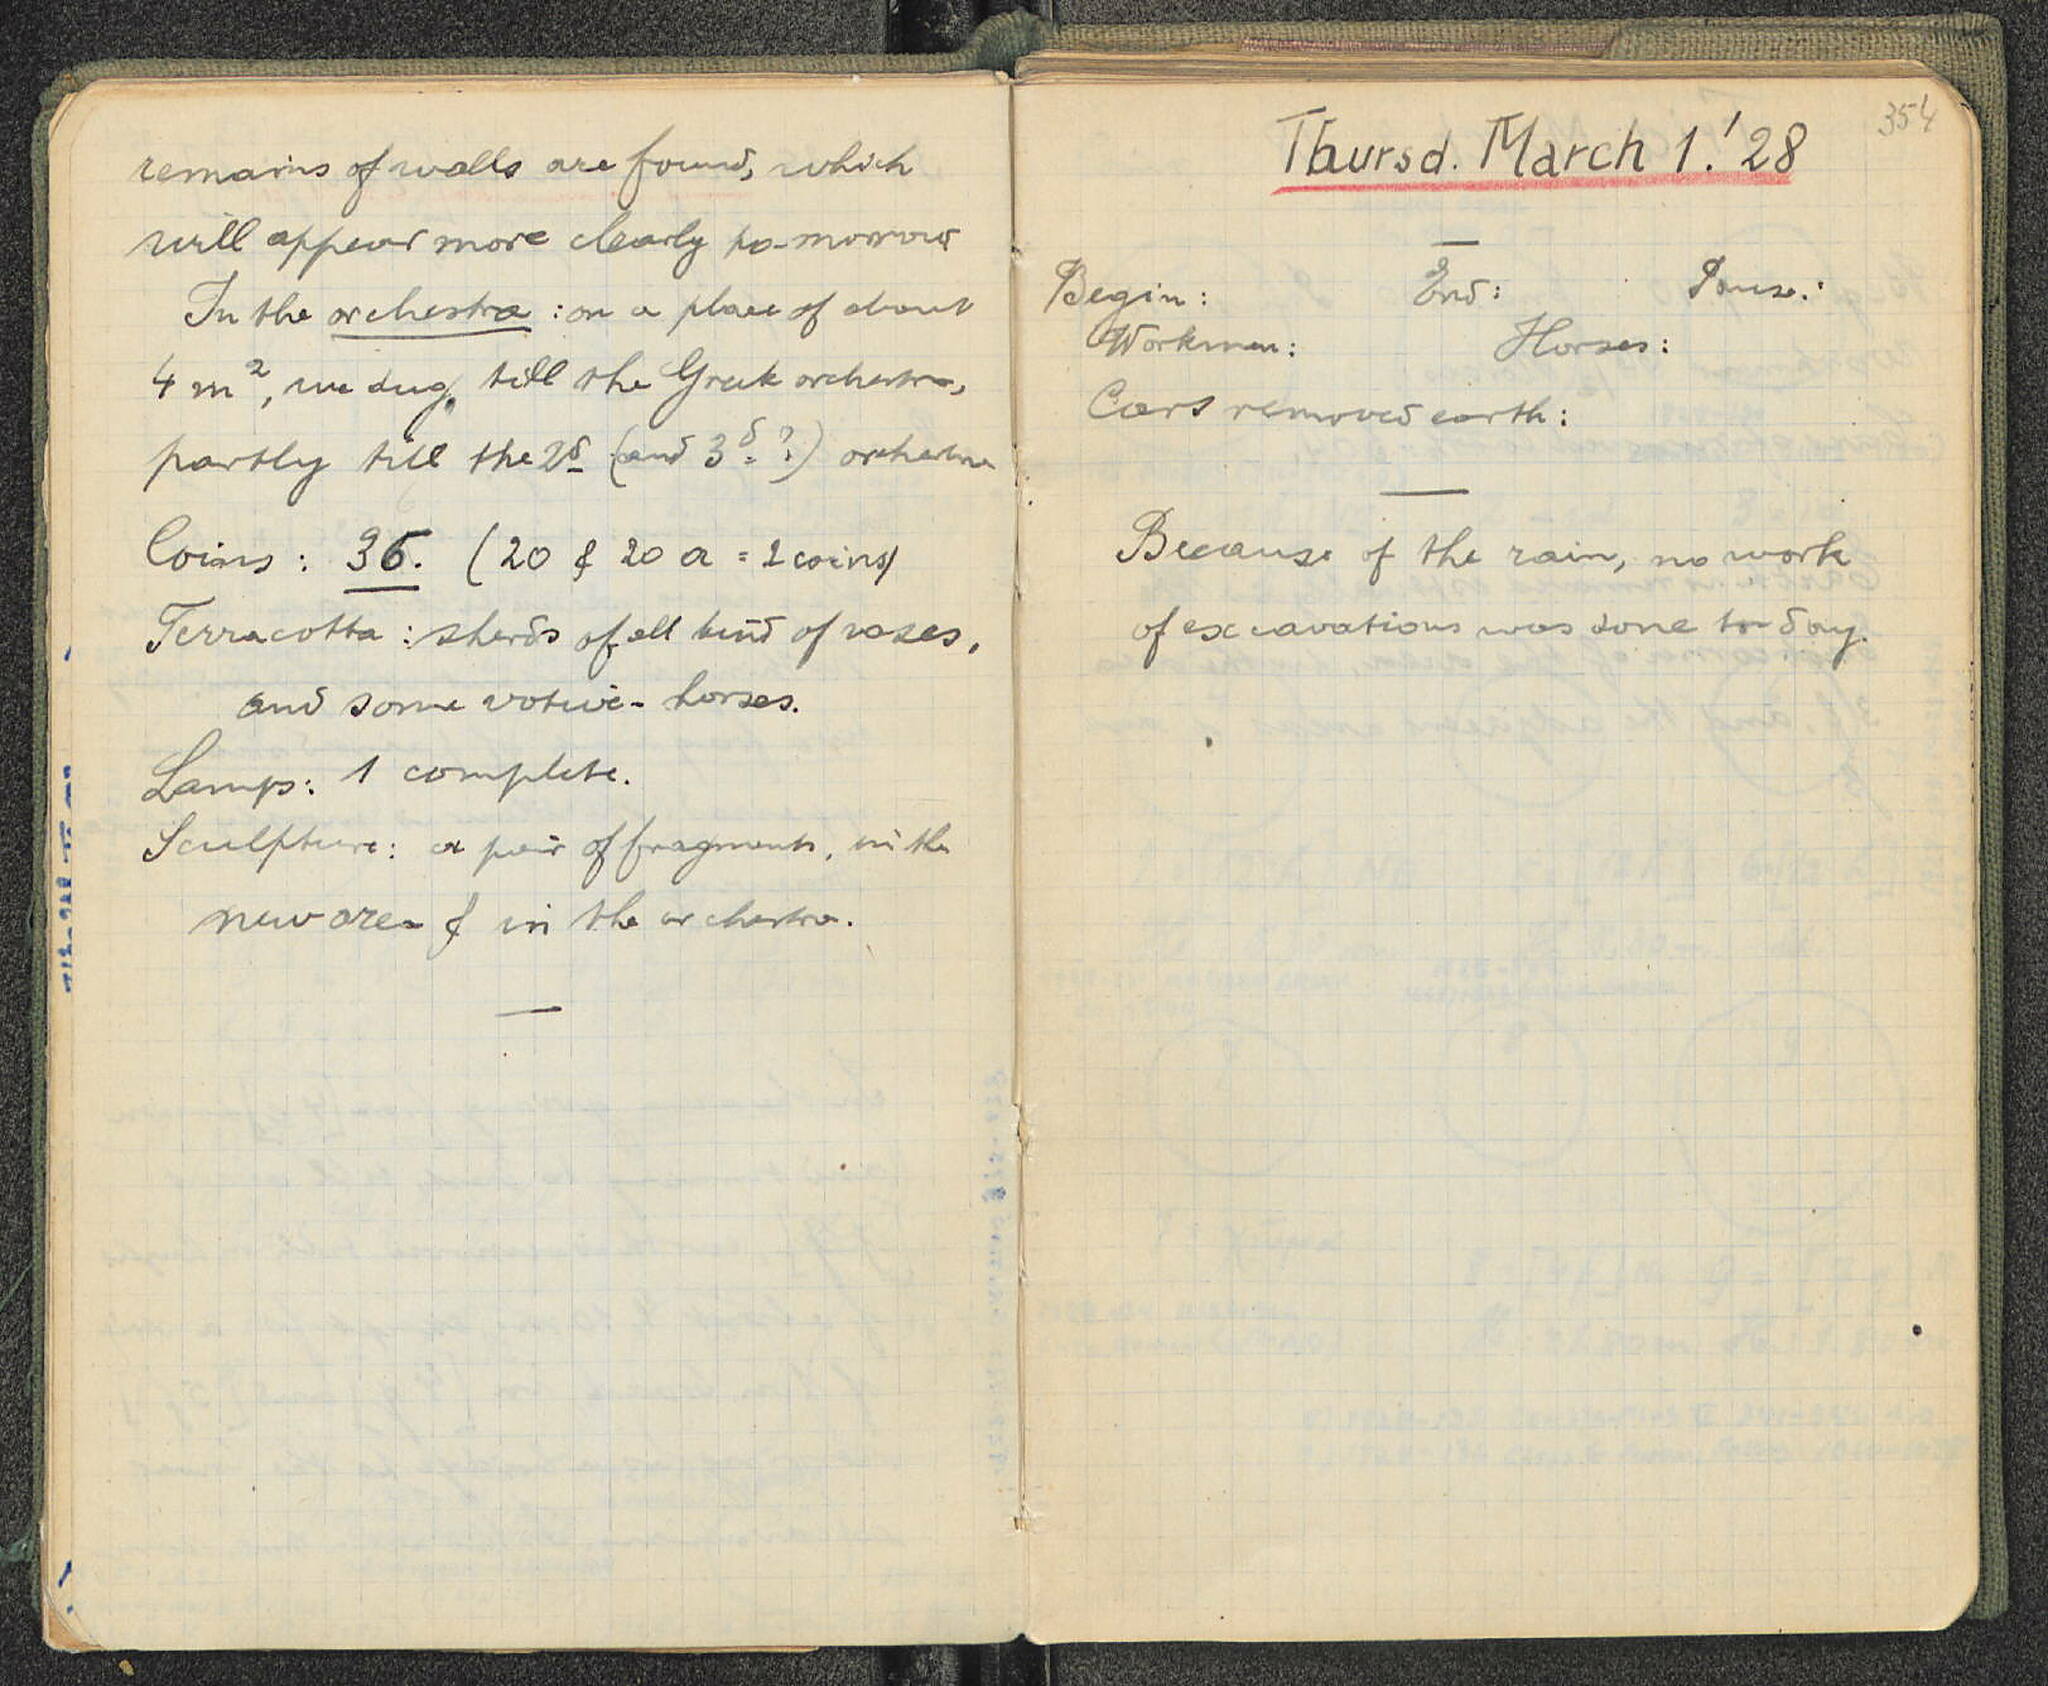 remains of walls are found, which
will appear more clearly to-morrow
In the orchestra : on a place of about
4 m², we dug, till the Greek orchestra,
partly till the 2d (and 3d ?) orchestra
Coins : 36. (20 & 20 a = 2 coins)
Terracotta : sherds of all kind of vases,
and some votive-horses.
Lamps: 1 complete.
Sculpture: a pair of fragments, in the
new area & in the orchestra.
354
Thursd. March 1.' 28
Begin: End: Pause:
Workmen: Horses:
Cars removed earth:
Because of the rain, no work
of excavations was done to-day.